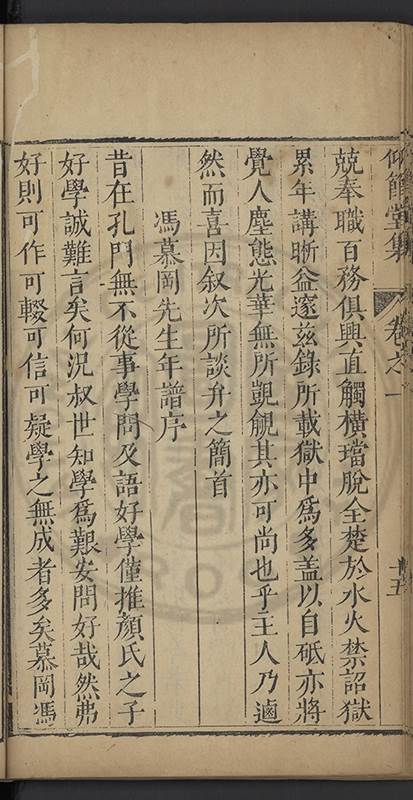 仰節堂集 卷之一 十五
兢奉職百務俱興直觸橫璫脫全楚於水火禁詔獄
累年講晰益邃茲錄所載獄中為多盖以自砥亦將
覺人塵態光華無所覬覦其亦可尚也乎主人乃逌
然而喜因叙次所談弁之簡首
馮慕岡先生年譜序
昔在孔門無不從事學問及語好學僅推顏氏之子
好學誠難言矣何況叔世知學為艱安問好哉然弗
好則可作可輟可信可疑學之無成者多矣慕岡馮